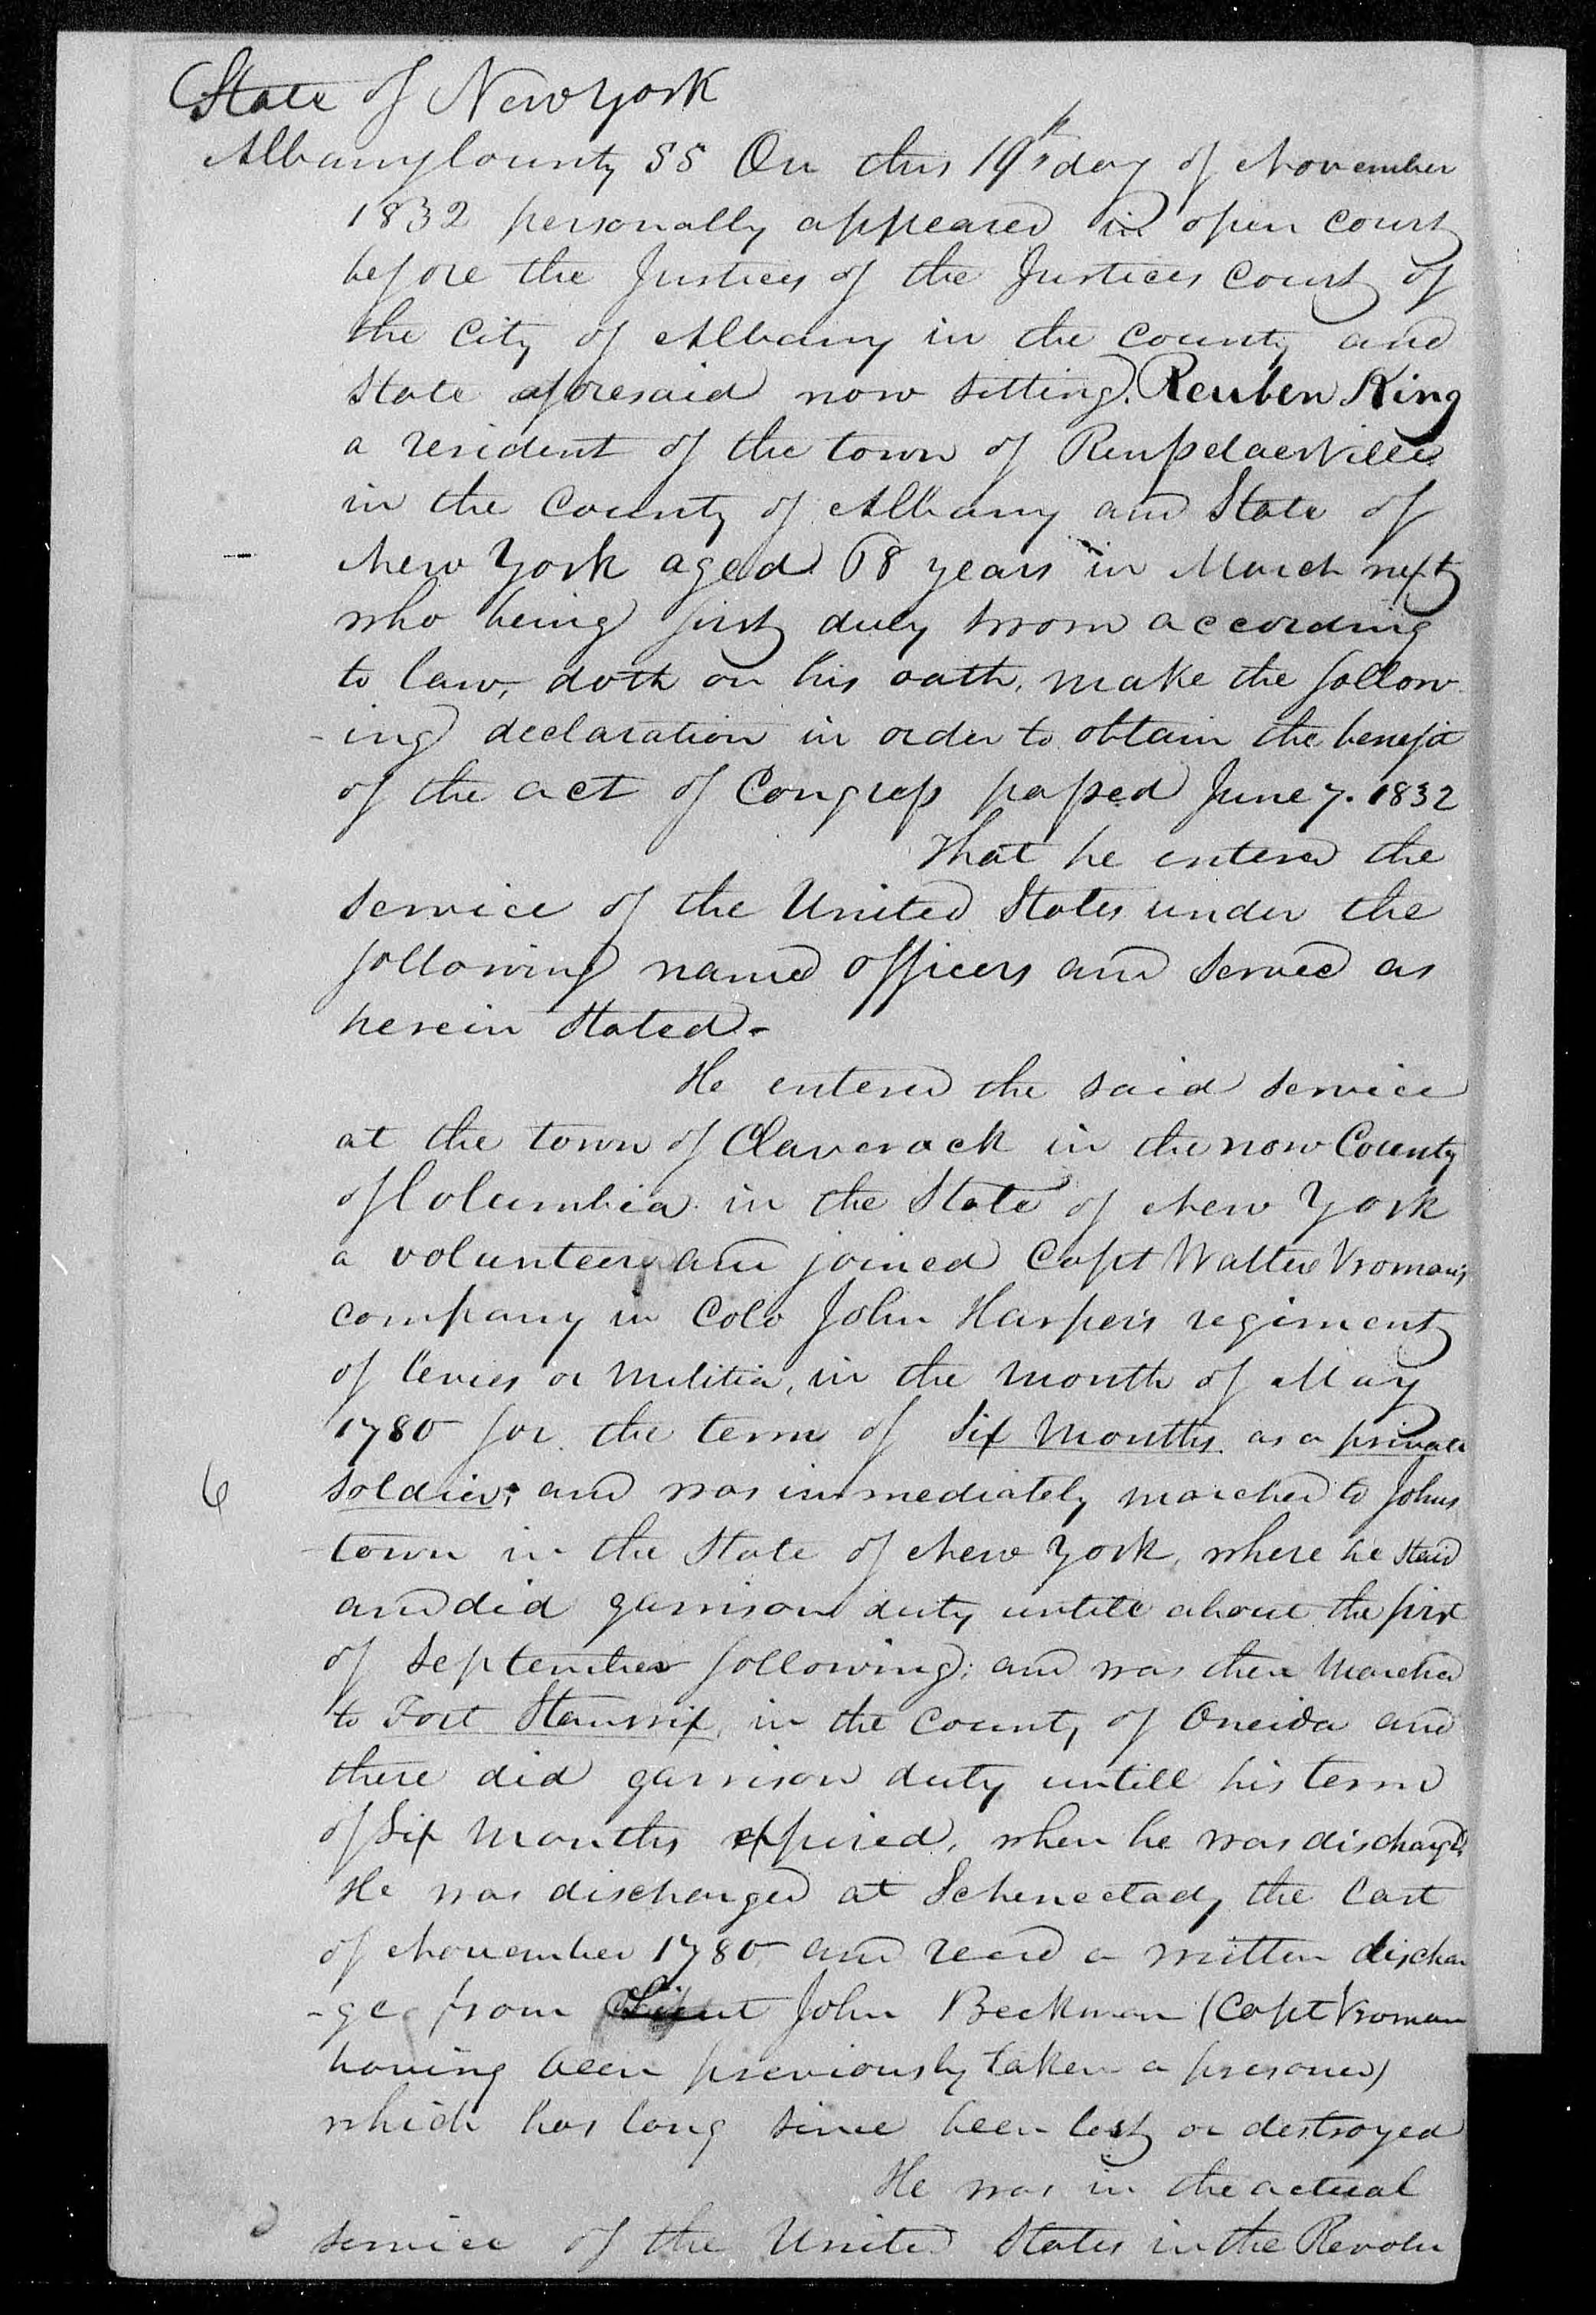 State of New York
Albany County SS On this 19th day of November
1832 personally appeared in open court
before the Justices of the Justices Court of
the City of Albany in the County and
State aforesaid now sitting. Reuben King
a resident of the town of Rensselaerville
in the County of Albany and State of
New York aged 68 years in March next
who being first duly sworn according
to law, doth on his oath, make the follow
-ing declaration in order to obtain the benefit
of the act of Congress passed June 7. 1832
That he entered the
service of the United States under the
following named officers and served as
herein stated-
He entered the said service
at the town of Claverack in the now County
of Columbia in the State of New York
a volunteer and joined Capt Walter Vroman's
company in Colo John Harper's regiment
of levies or militia, in the month of May
1780 for the term of Six Months as a private
6 soldier; and was immediately marched to Johns
town in the State of New York, where he staid
and did garrison duty untill about the first
of September following; and was then marched
to Fort Stanwix, in the County of Oneida and
there did garrison duty untill his term
of Six Months expired, when he was discharged
He was discharged at Schenectady the last
of November 1780 and recd a written dischar
-ge from Lieut John Beekman (Capt Vroman
having been previously taken a prisoner)
which has long since been lost or destroyed
He was in the actual
service of the United States in the Revolu